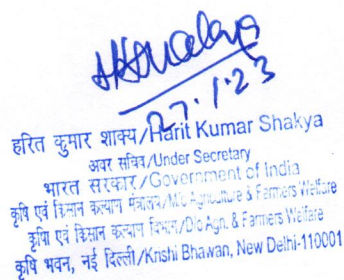 27.1.23
हरित कुमार शाक्य/Harit Kumar Shakya
अवर सचिव/Under Secretary
भारत सरकार/Government of India
कृषि एवं किसान कल्याण मंत्रालय/M/o Agriculture & Farmers Welfare
कृषि एवं किसान कल्याण विभाग/D/o Agn. & Farmers Welfare
कृषि भवन, नई दिल्ली/Krishi Bhawan, New Delhi-110001